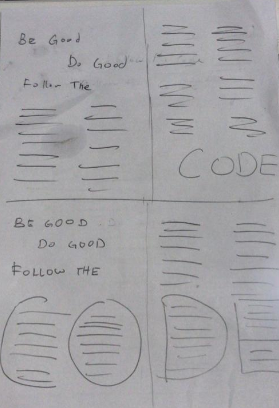 Be Good
Do Good
Follow The
CODE
BE GOOD
DO GOOD
FOLLOW THE